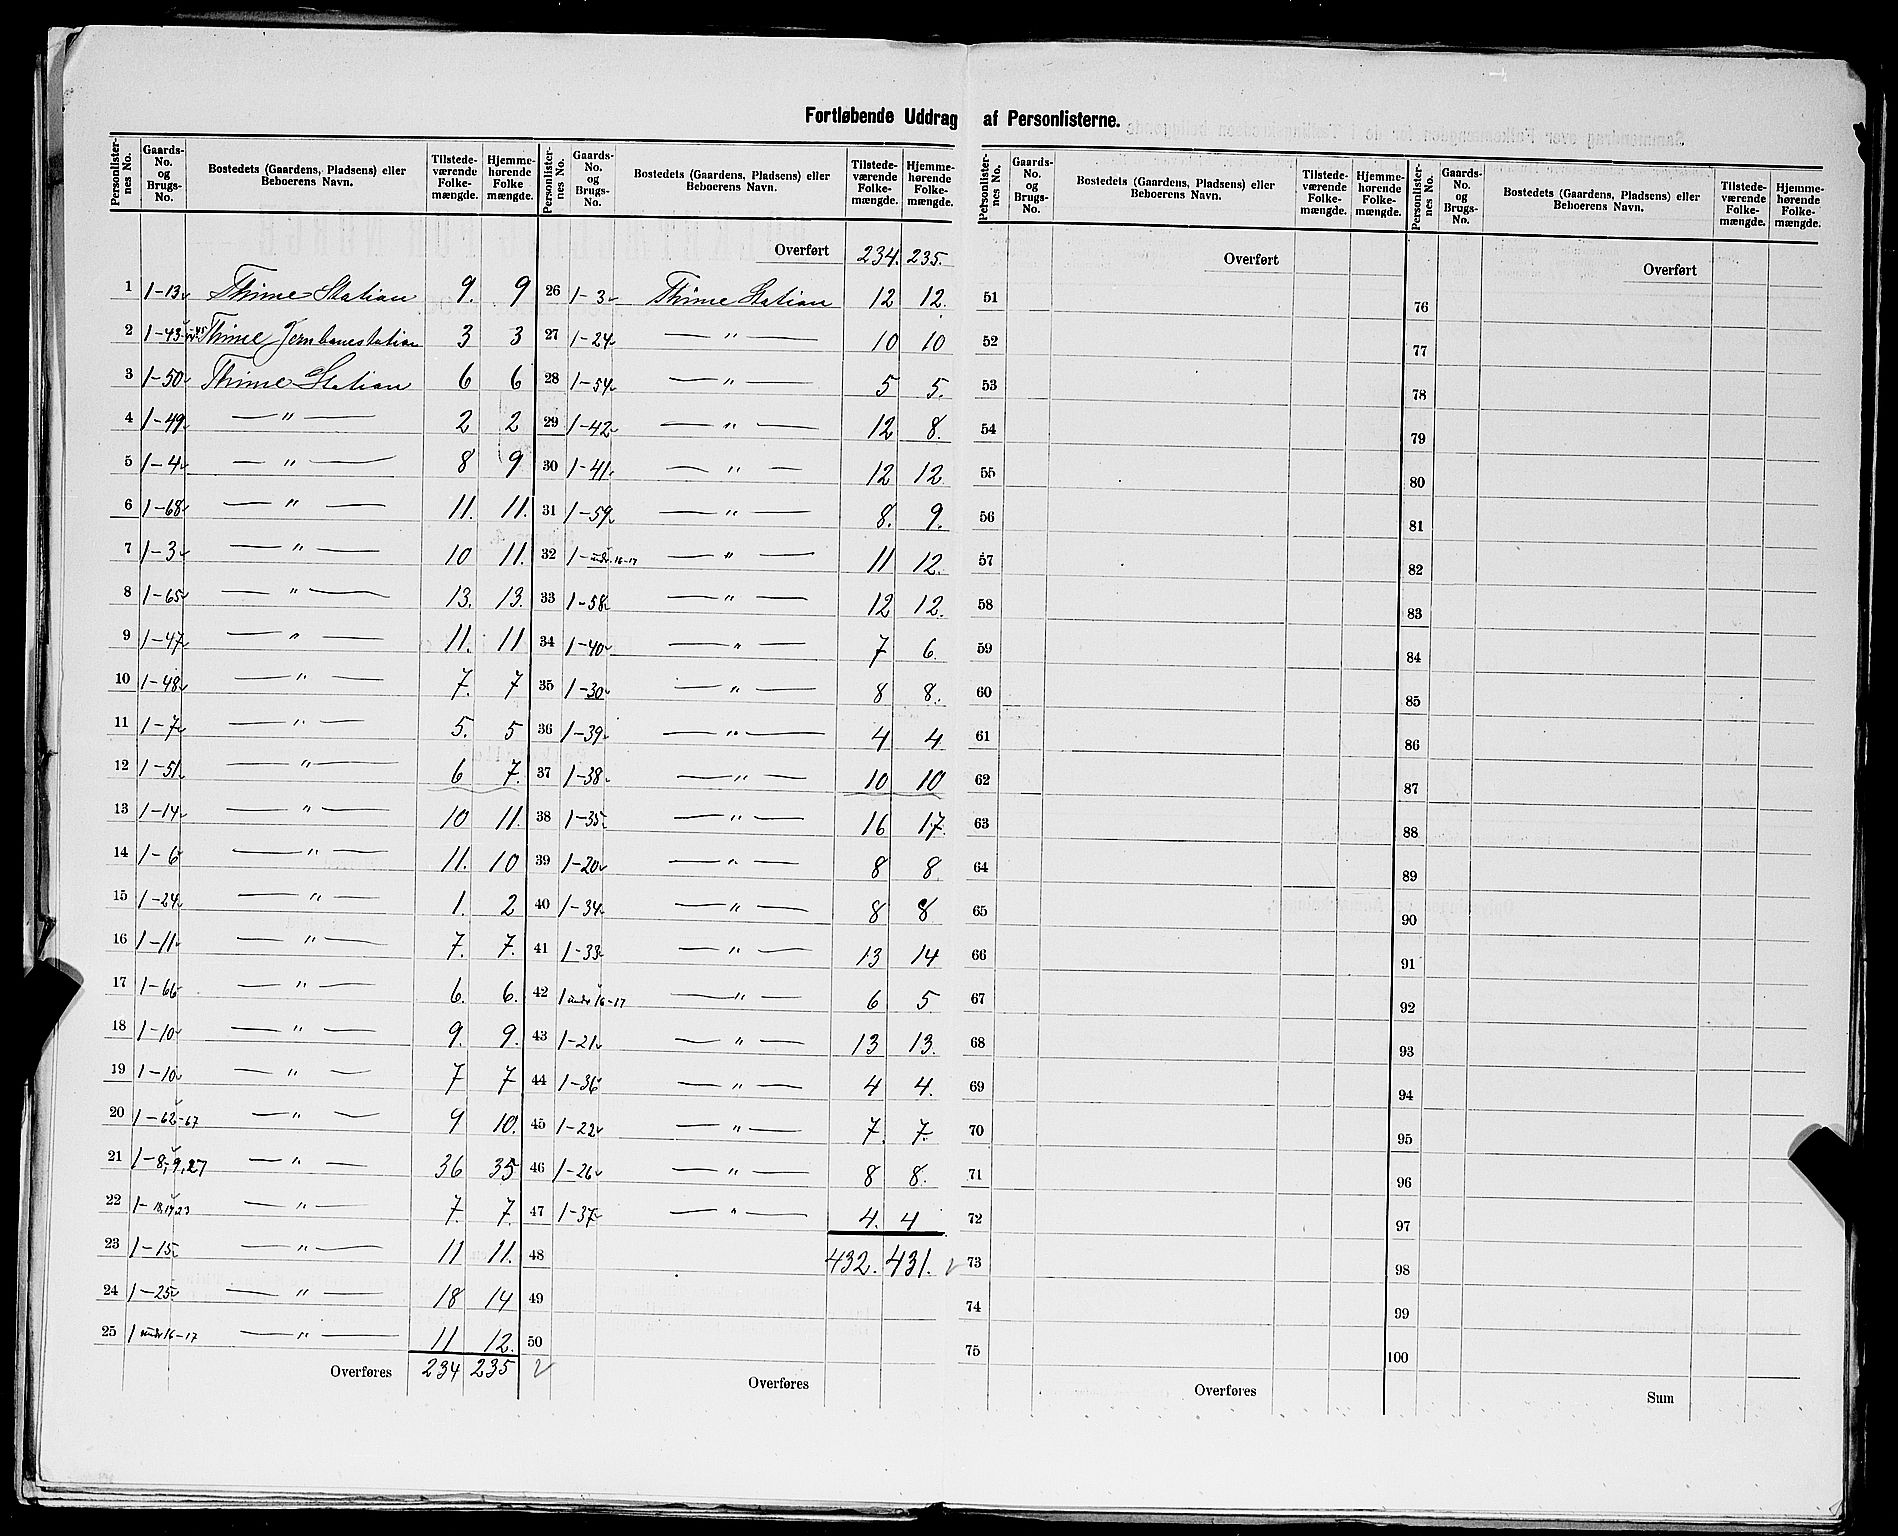 Fortløbende Uddrag af Personlisterne.
Personlister-nes No. | Gaards-No. og Brugs-No. | Bostedets (Gaardens, Pladsens) eller Beboerens Navn. | Tilstede-værende Folke-mængde. | Hjemme-hørende Folke mængde.
1 | 1-13 | Thime Station | 9. | 9
2 | 1-43 45 | Thime Jernbanestation | 3 | 3
3 | 1-50 | Thime Station | 6 | 6
4 | 1-49 | — " — | 2 | 2
5 | 1-4 | — " — | 8 | 9
6 | 1-68 | — " — | 11. | 11.
7 | 1-3 | — " — | 10 | 11.
8 | 1-65 | — " — | 13. | 13.
9 | 1-47 | — " — | 11. | 11
10 | 1-48 | — " — | 7. | 7
11 | 1-7 | — " — | 5. | 5
12 | 1-51 | — " — | 6 | 7.
13 | 1-14 | — " — | 10 | 11.
14 | 1-6 | — " — | 11. | 10
15 | 1-24 | — " — | 1. | 2
16 | 1-11 | — " — | 7. | 7.
17 | 1-66 | — " — | 6. | 6.
18 | 1-10 | — " — | 9. | 9.
19 | 1-10 | — " — | 7 | 7
20 | 1-62-67 | — " — | 9 | 10.
21 | 1-8,9,27 | — " — | 36 | 35
22 | 1-18,19,23 | — " — | 7. | 7.
23 | 1-15 | — " — | 11 | 11.
24 | 1-25 | — " — | 18 | 14
25 | 1 under 16-17 | — " — | 11 | 12.
Overføres | 234 | 235
Personlister-nes No. | Gaards-No. og Brugs-No. | Bostedets (Gaardens, Pladsens) eller Beboerens Navn. | Tilstede-værende Folke-mængde. | Hjemme-hørende Folke-mængde.
Overført | 234. | 235.
26 | 1-3 | Thime Station | 12 | 12.
27 | 1-24 | — " — | 10 | 10
28 | 1-54 | — " — | 5 | 5.
29 | 1-42 | — " — | 12 | 8.
30 | 1-41 | — " — | 12 | 12.
31 | 1-59 | — " — | 8. | 9.
32 | 1-under 16-17 | — " — | 11 | 12.
33 | 1-58 | — " — | 12 | 12.
34 | 1-40 | — " — | 7 | 6.
35 | 1-30 | — " — | 8 | 8.
36 | 1-39 | — " — | 4 | 4
37 | 1-38 | — " — | 10 | 10
38 | 1-35 | — " — | 16 | 17.
39 | 1-20 | — " — | 8 | 8.
40 | 1-34 | — " — | 8 | 8
41 | 1-33 | — " — | 13 | 14
42 | 1 under 16-17 | — " — | 6 | 5.
43 | 1-21 | — " — | 13 | 13.
44 | 1-36 | — " — | 4 | 4.
45 | 1-22 | — " — | 7. | 7.
46 | 1-26 | — " — | 8 | 8.
47 | 1-37 | — " — | 4. | 4
48 | 432. | 431.
49
50
Overføres
Personlister-nes No. | Gaards-No. og Brugs-No. | Bostedets (Gaardens, Pladsens) eller Beboerens Navn. | Tilstede-værende Folke-mængde. | Hjemme-hørende Folke-mængde.
Overført
51
52
53
54
55
56
57
58
59
60
61
62
63
64
65
66
67
68
69
70
71
72
73
74
75
Overføres
Personlister-nes No. | Gaards-No. og Brugs-No. | Bostedets (Gaardens, Pladsens) eller Beboerens Navn. | Tilstede-værende Folke-mængde. | Hjemme-hørende Folke-mængde.
Overført
76
77
78
79
80
81
82
83
84
85
86
87
88
89
90
91
92
93
94
95
96
97
98
99
100
Sum